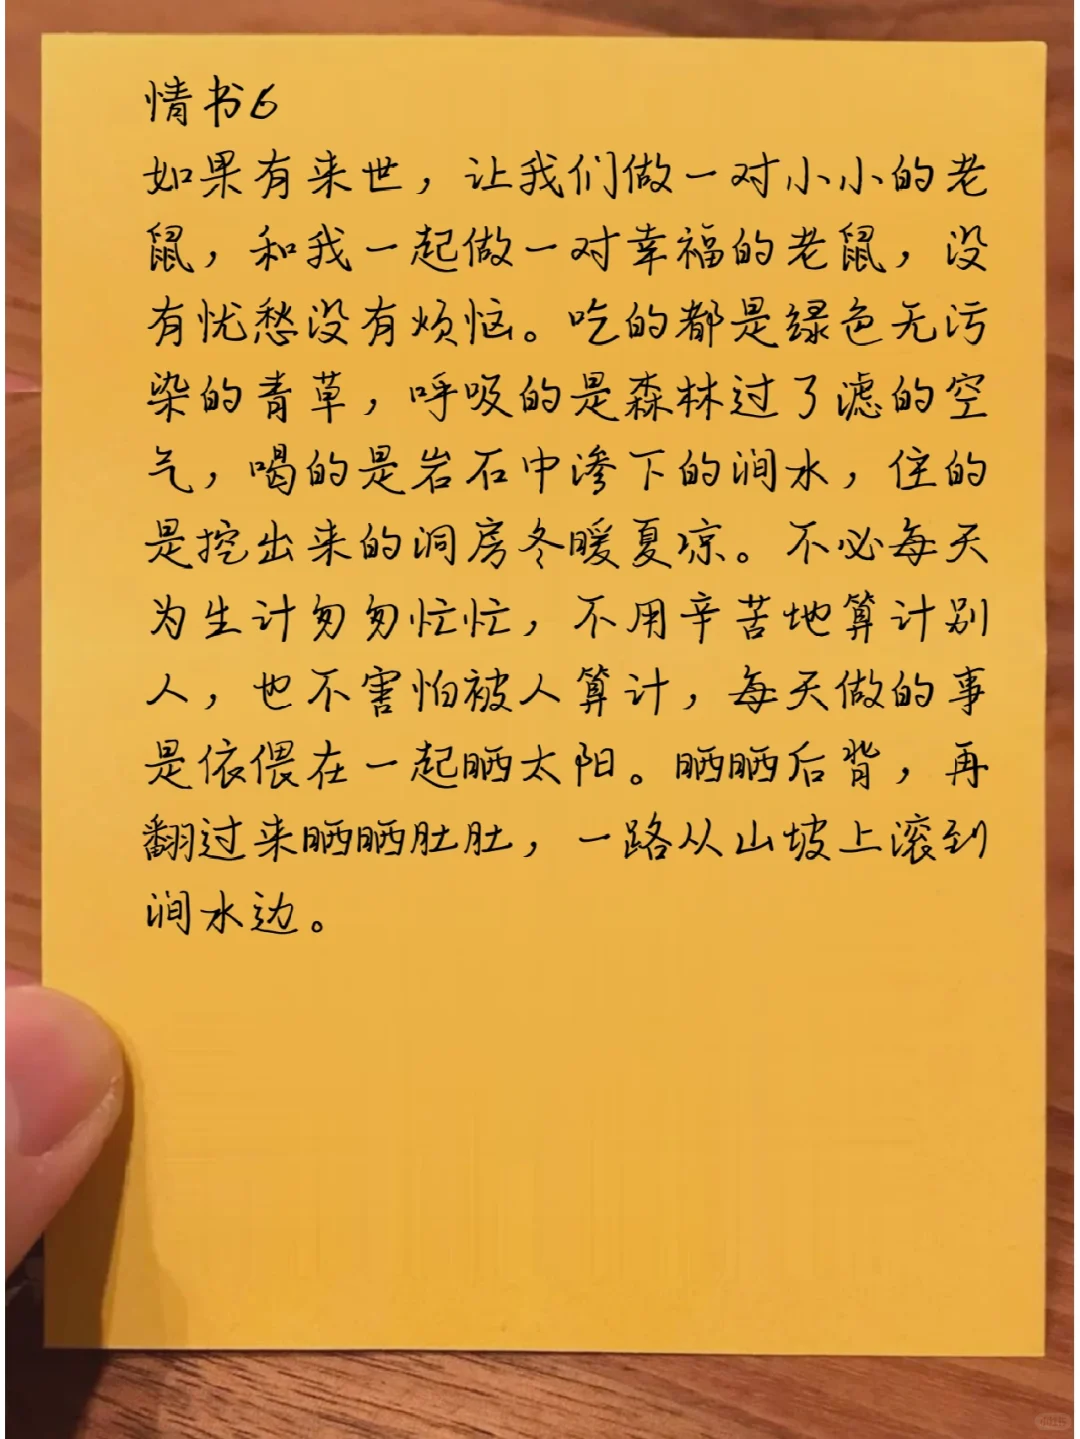 情书6
如果有来世，让我们做一对小小的老
鼠，和我一起做一对幸福的老鼠，没
有忧愁没有烦恼。吃的都是绿色无污
染的青草，呼吸的是森林过了滤的空
气，喝的是岩石中渗下的涧水，住的
是挖出来的洞房冬暖夏凉。不必每天
为生计匆匆忙忙，不用辛苦地算计别
人，也不害怕被人算计，每天做的事
是依偎在一起晒太阳。晒晒后背，再
翻过来晒晒肚肚，一路从山坡上滚到
涧水边。